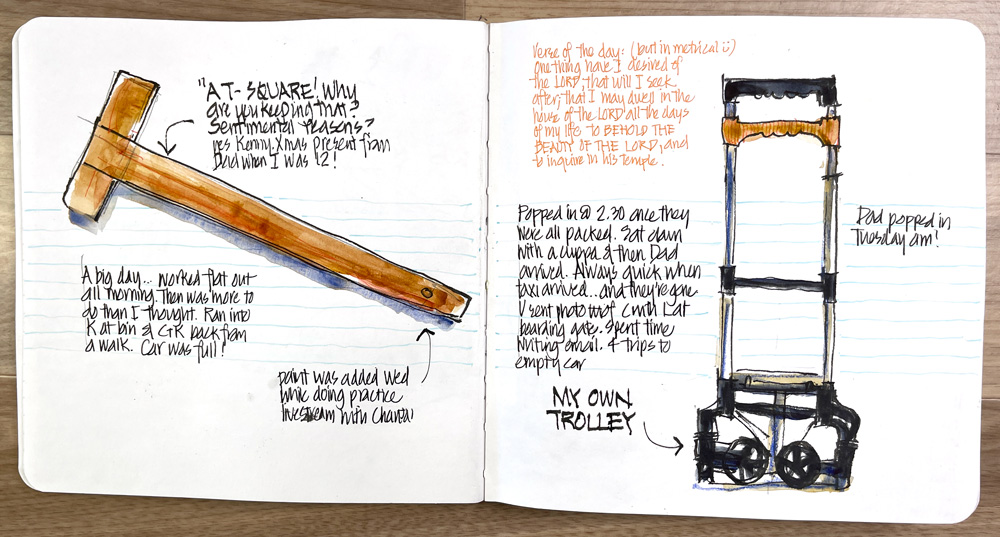 "A T-SQUARE! Why
are you keeping that?
Sentimental reasons?
yes Kenny. Xmas present from
Dad when I was 12!
A big day... worked flat out
all morning. Then was more to
do than I thought. Ran into
K at bin & G+K back from
a walk. Car was full!
paint was added Wed
while doing practice
livestream with Chantal
Verse of the day: (but in metrical :))
One thing have I desired of
the LORD, that will I seek
after; that I may dwell in the
house of the LORD all the days
of my life to BEHOLD THE
BEAUTY OF THE LORD, and
to inquire in his temple.
Popped in @ 2.30 once they
were all packed. Sat down
with a cuppa & then Dad
arrived. Always quick when
taxi arrived... and they're gone
sent photo of with at
boarding gate. Spent time
writing email. 4 trips to
empty car
MY OWN
TROLLEY
Dad popped in
Tuesday am!